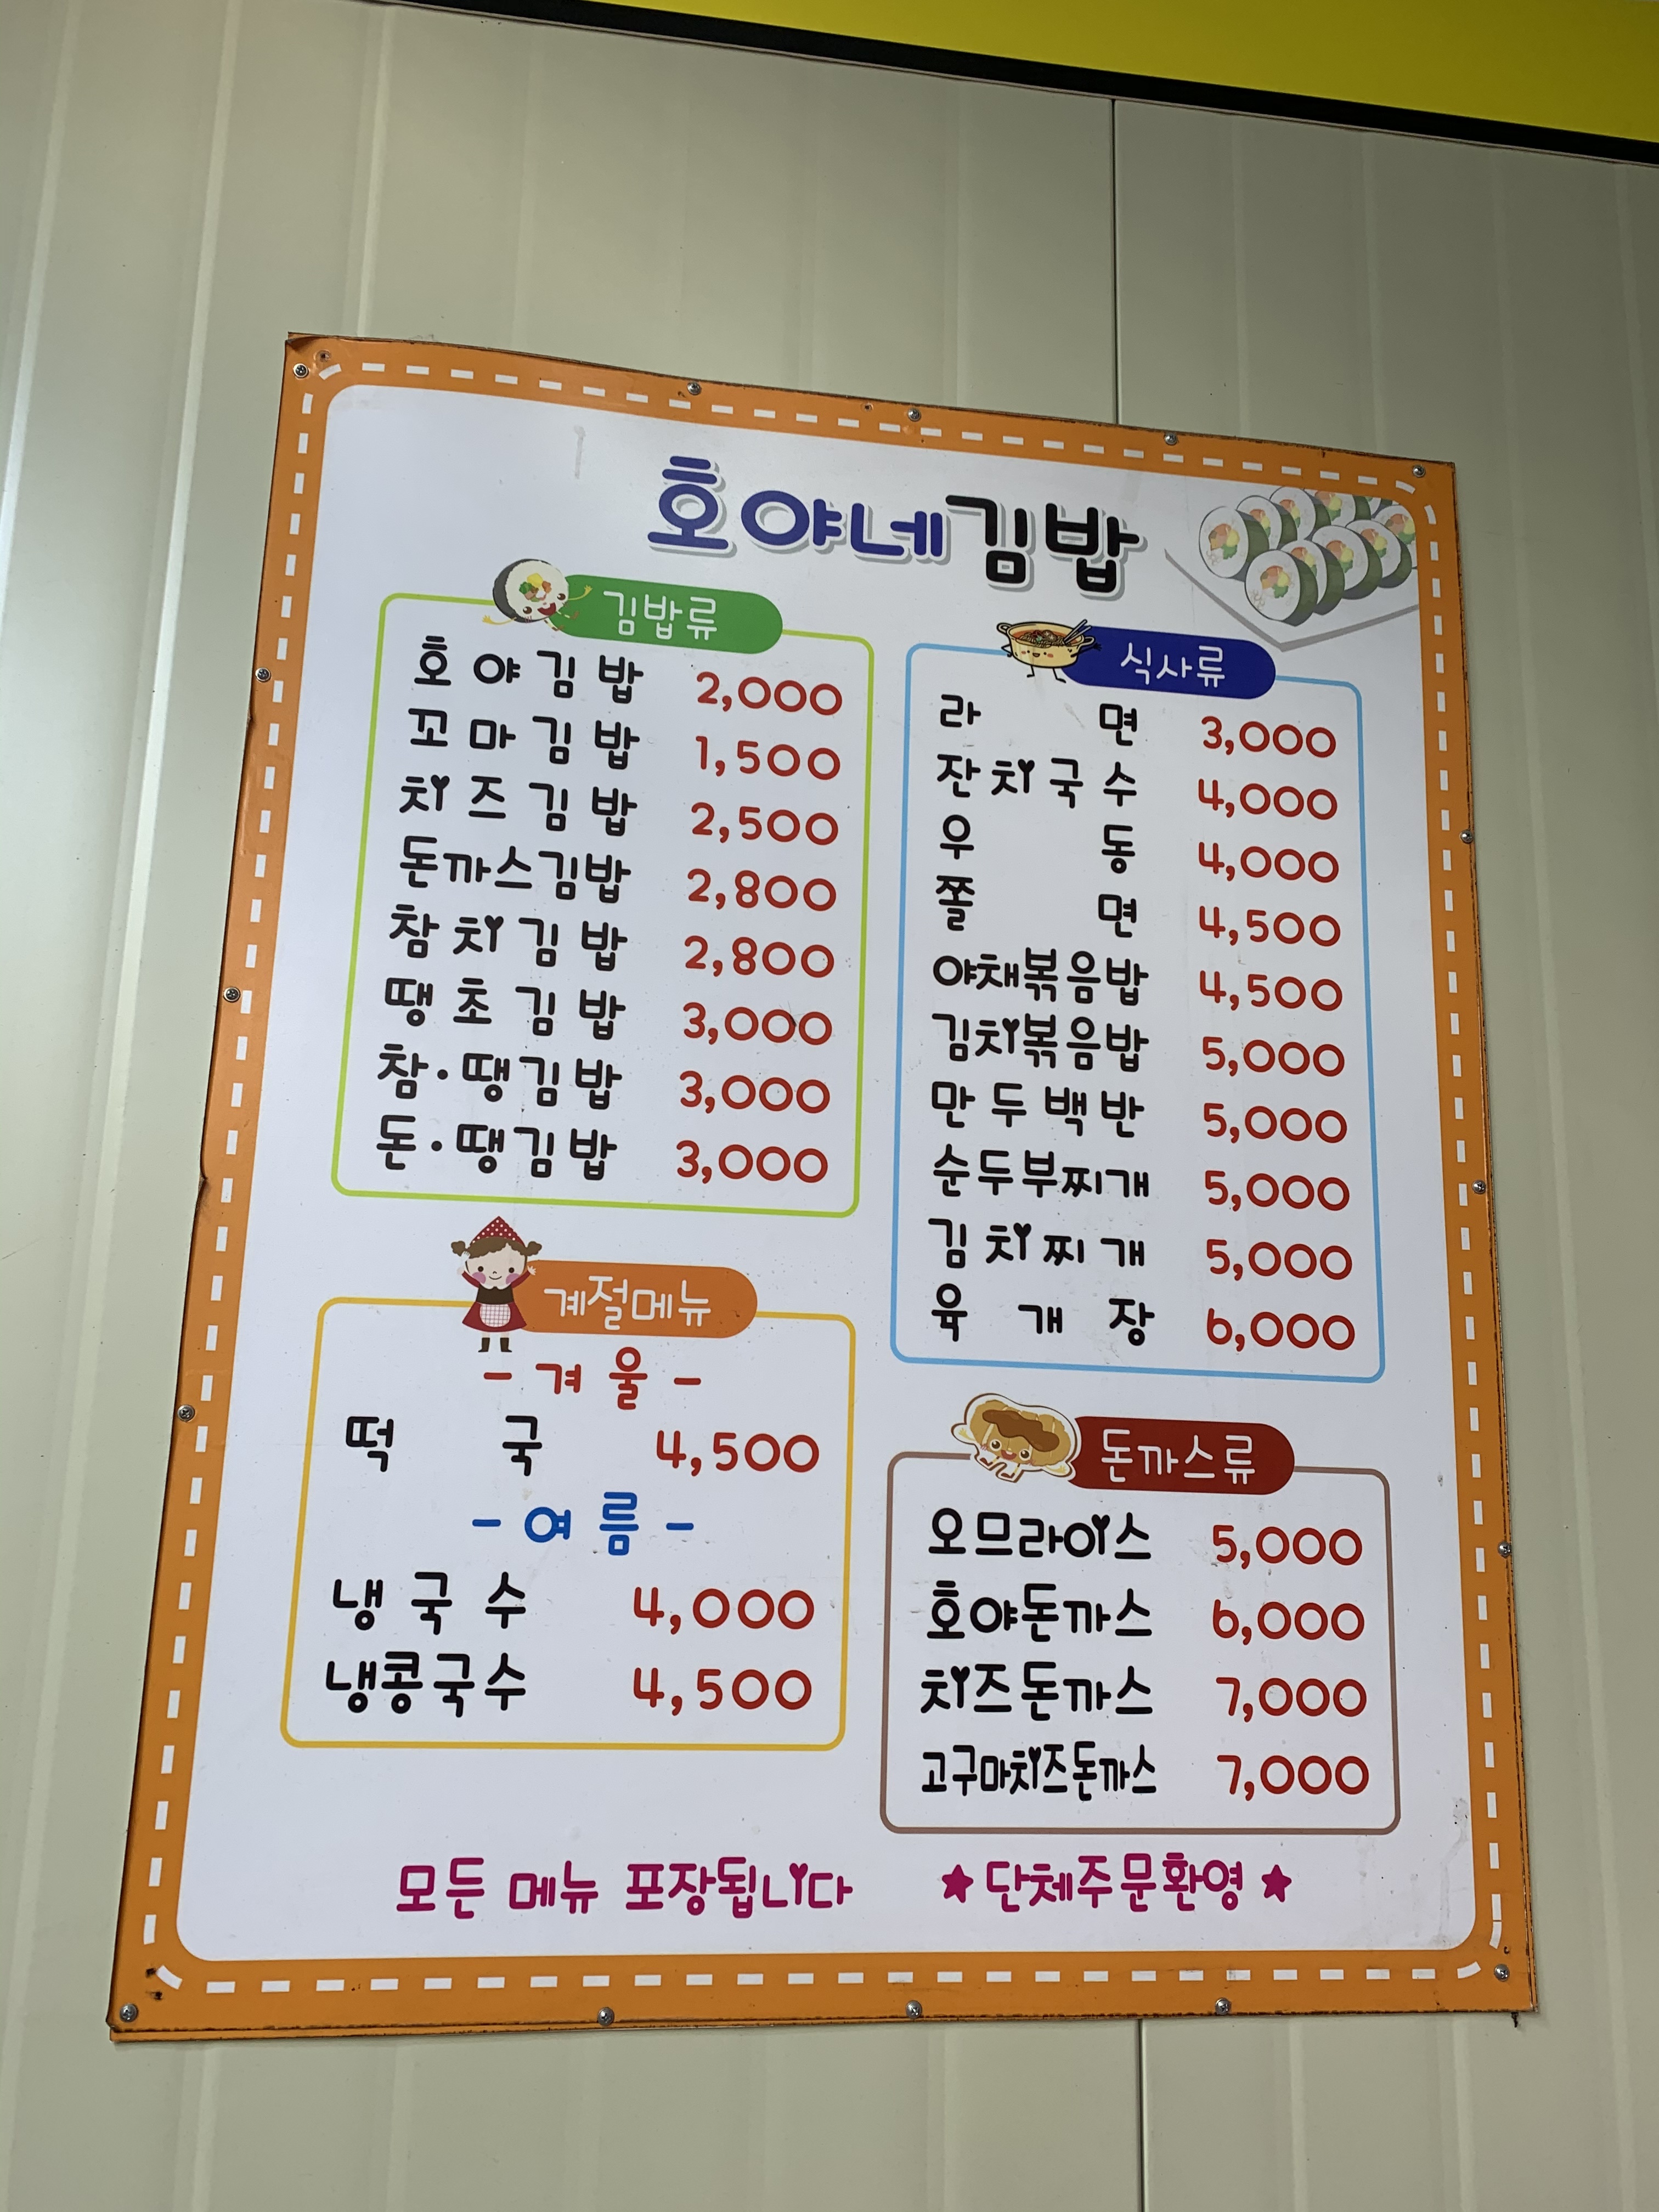 호야네김밥
김밥류
호야김밥 2,000
꼬마김밥 1,500
치즈김밥 2,500
돈까스김밥 2,800
참치김밥 2,800
땡초김밥 3,000
참·땡김밥 3,000
돈·땡김밥 3,000
식사류
라면 3,000
잔치국수 4,000
우동 4,000
쫄면 4,500
야채볶음밥 4,500
김치볶음밥 5,000
만두백반 5,000
순두부찌개 5,000
김치찌개 5,000
육개장 6,000
계절메뉴
- 겨울 -
떡국 4,500
- 여름 -
냉국수 4,000
냉콩국수 4,500
돈까스류
오므라이스 5,000
호야돈까스 6,000
치즈돈까스 7,000
고구마치즈돈까스 7,000
모든 메뉴 포장됩니다 ★단체주문환영★